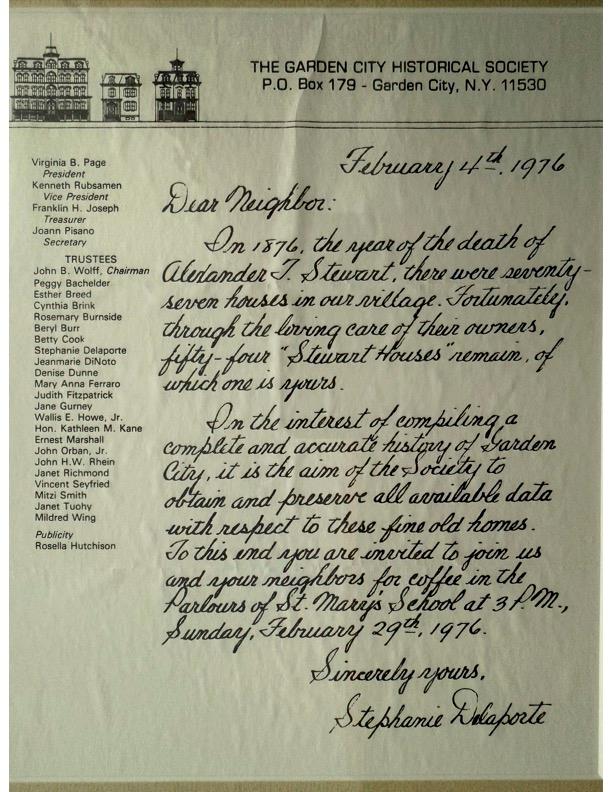 THE GARDEN CITY HISTORICAL SOCIETY
P.O. Box 179 - Garden City, N.Y. 11530
Virginia B. Page
President
Kenneth Rubsamen
Vice President
Franklin H. Joseph
Treasurer
Joann Pisano
Secretary
TRUSTEES
John B. Wolff, Chairman
Peggy Bachelder
Esther Breed
Cynthia Brink
Rosemary Burnside
Beryl Burr
Betty Cook
Stephanie Delaporte
Jeanmarie DiNoto
Denise Dunne
Mary Anna Ferraro
Judith Fitzpatrick
Jane Gurney
Wallis E. Howe, Jr.
Hon. Kathleen M. Kane
Ernest Marshall
John Orban, Jr.
John H.W. Rhein
Janet Richmond
Vincent Seyfried
Mitzi Smith
Janet Tuohy
Mildred Wing
Publicity
Rosella Hutchison
February 4th, 1976
Dear Neighbor:
In 1876, the year of the death of
Alexander T. Stewart, there were seventy-
seven houses in our village. Fortunately,
through the loving care of their owners,
fifty-four "Stewart Houses" remain, of
which one is yours.
In the interest of compiling a
complete and accurate history of Garden
City, it is the aim of the Society to
obtain and preserve all available data
with respect to these fine old homes.
To this end you are invited to join us
and your neighbors for coffee in the
Parlours of St. Mary's School at 3 P.M.,
Sunday, February 29th, 1976.
Sincerely yours,
Stephanie Delaporte